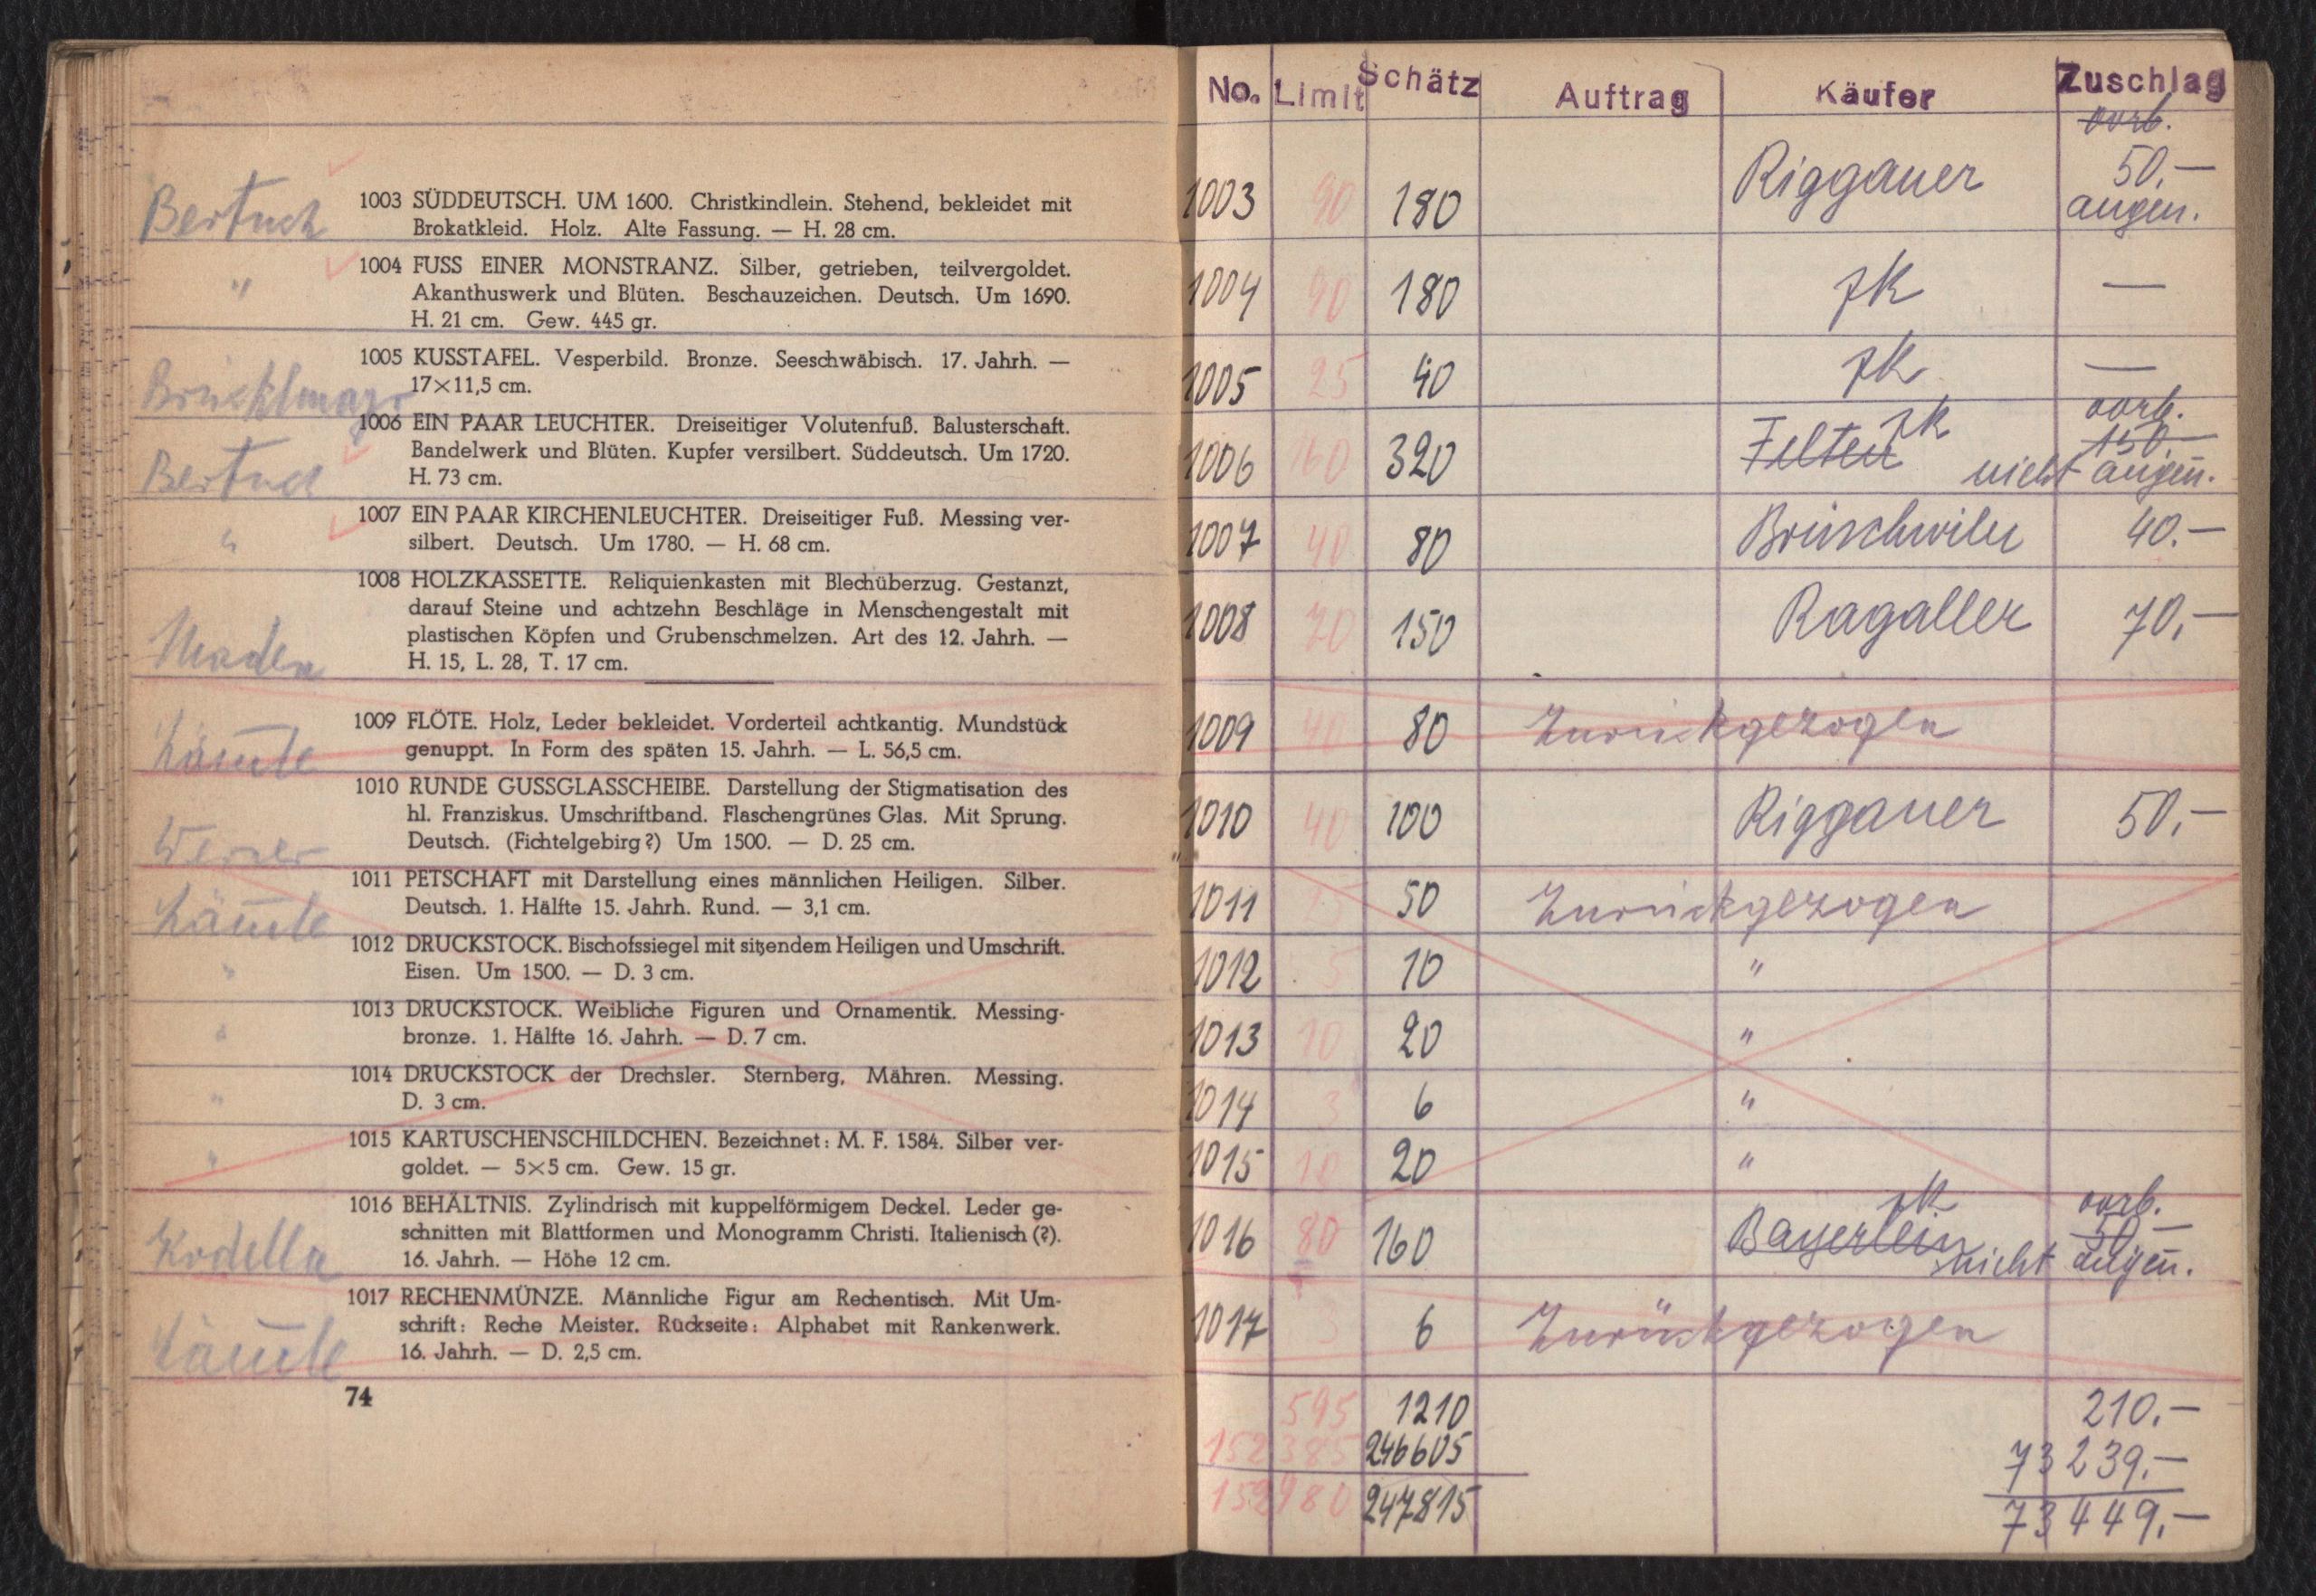 Bertuch
1003 SÜDDEUTSCH. UM 1600. Christkindlein. Stehend, bekleidet mit
Brokatkleid. Holz. Alte Fassung. — H. 28 cm.
"
1004 FUSS EINER MONSTRANZ. Silber, getrieben, teilvergoldet.
Akanthuswerk und Blüten. Beschauzeichen. Deutsch. Um 1690.
H. 21 cm. Gew. 445 gr.
Brücklmayr
1005 KUSSTAFEL. Vesperbild. Bronze. Seeschwäbisch. 17. Jahrh. —
17×11,5 cm.
Bertuch
1006 EIN PAAR LEUCHTER. Dreiseitiger Volutenfuß. Balusterschaft.
Bandelwerk und Blüten. Kupfer versilbert. Süddeutsch. Um 1720.
H. 73 cm.
"
1007 EIN PAAR KIRCHENLEUCHTER. Dreiseitiger Fuß. Messing ver-
silbert. Deutsch. Um 1780. — H. 68 cm.
1008 HOLZKASSETTE. Reliquienkasten mit Blechüberzug. Gestanzt,
darauf Steine und achtzehn Beschläge in Menschengestalt mit
plastischen Köpfen und Grubenschmelzen. Art des 12. Jahrh. —
H. 15, L. 28, T. 17 cm.
1009 FLÖTE. Holz, Leder bekleidet. Vorderteil achtkantig. Mundstück
genuppt. In Form des späten 15. Jahrh. — L. 56,5 cm.
1010 RUNDE GUSSGLASSCHEIBE. Darstellung der Stigmatisation des
hl. Franziskus. Umschriftband. Flaschengrünes Glas. Mit Sprung.
Deutsch. (Fichtelgebirg?) Um 1500. — D. 25 cm.
Werner
1011 PETSCHAFT mit Darstellung eines männlichen Heiligen. Silber.
Deutsch. 1. Hälfte 15. Jahrh. Rund. — 3,1 cm.
"
1012 DRUCKSTOCK. Bischofssiegel mit sitzendem Heiligen und Umschrift.
Eisen. Um 1500. — D. 3 cm.
"
1013 DRUCKSTOCK. Weibliche Figuren und Ornamentik. Messing-
bronze. 1. Hälfte 16. Jahrh. — D. 7 cm.
"
1014 DRUCKSTOCK der Drechsler. Sternberg, Mähren. Messing.
D. 3 cm.
"
1015 KARTUSCHENSCHILDCHEN. Bezeichnet: M. F. 1584. Silber ver-
goldet. — 5×5 cm. Gew. 15 gr.
Kodella
1016 BEHÄLTNIS. Zylindrisch mit kuppelförmigem Deckel. Leder ge-
schnitten mit Blattformen und Monogramm Christi. Italienisch (?).
16. Jahrh. — Höhe 12 cm.
1017 RECHENMÜNZE. Männliche Figur am Rechentisch. Mit Um-
schrift: Reche Meister. Rückseite: Alphabet mit Rankenwerk.
16. Jahrh. — D. 2,5 cm.
74
No. Limit Schätz Auftrag Käufer Zuschlag
vorb.
1003 90 180 Riggauer 50,—
angen.
1004 90 180 zk —
1005 25 40 zk —
zk vorb.
1006 160 320 Felten 150.—
nicht angen.
1007 40 80 Brüschwiler 40.—
1008 70 150 Ragaller 70,—
1009 40 80 Zurückgezogen
1010 40 100 Riggauer 50,—
1011 50 Zurückgezogen
1012 5 10 "
1013 10 20 "
1014 3 6 "
1015 10 20 "
zk vorb.
1016 80 160 Bayerlein 50.—
nicht angen.
1017 3 6 Zurückgezogen
595 1210 210.—
152385 246605 73239.—
152980 247815 73449.—